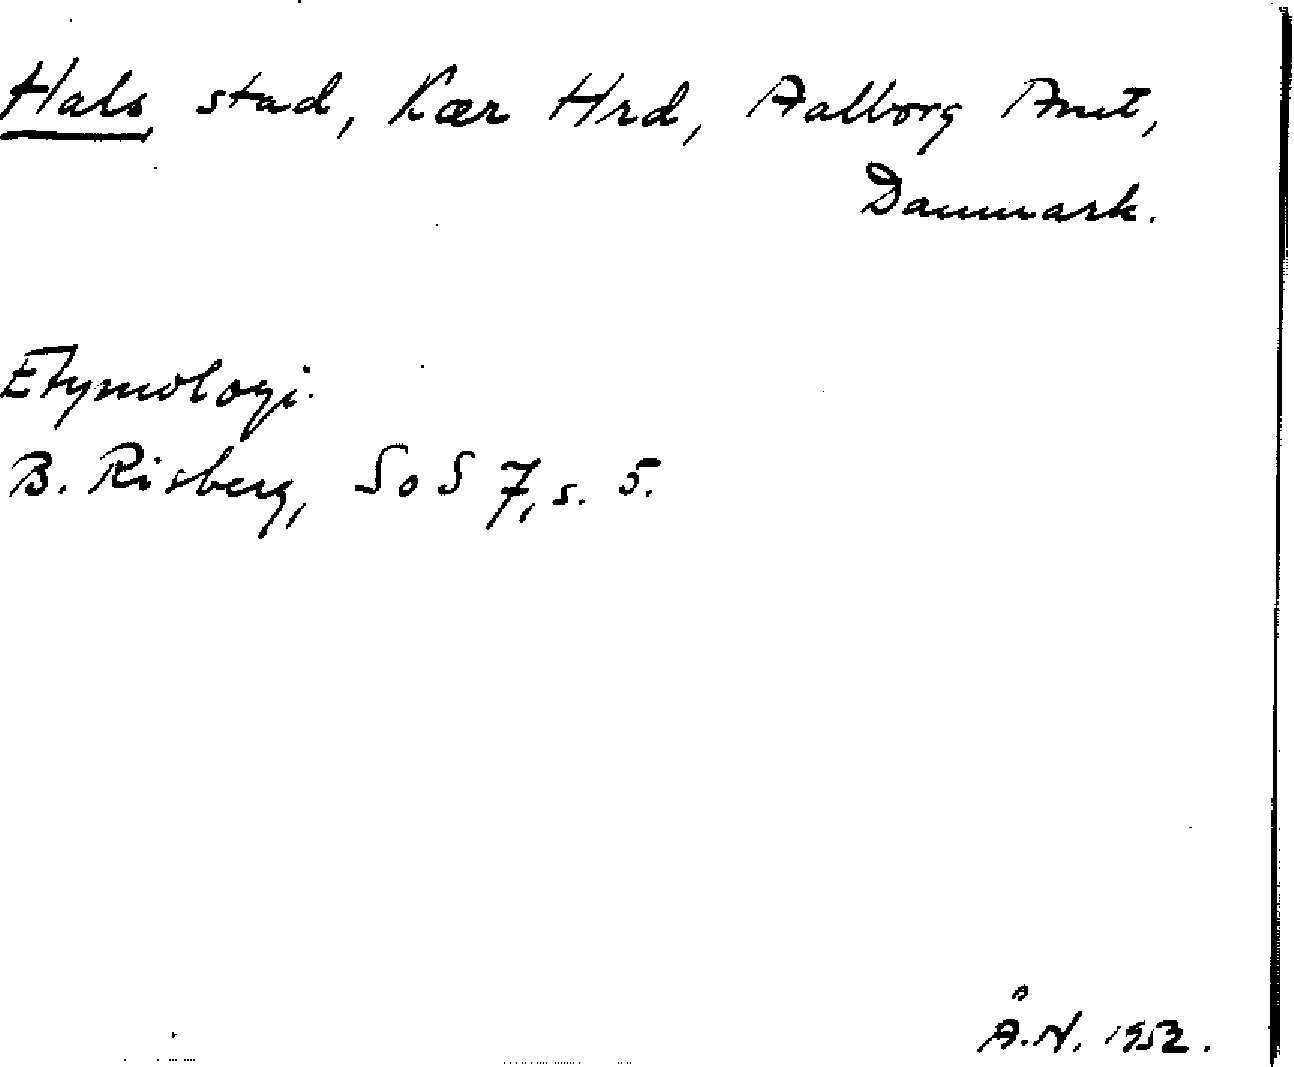 Hals stad, Kær Hrd, Aalborg Amt,
Danmark.
Etymologi.
B. Risberg, SoS 7, s. 5.
Å.N. 1952.